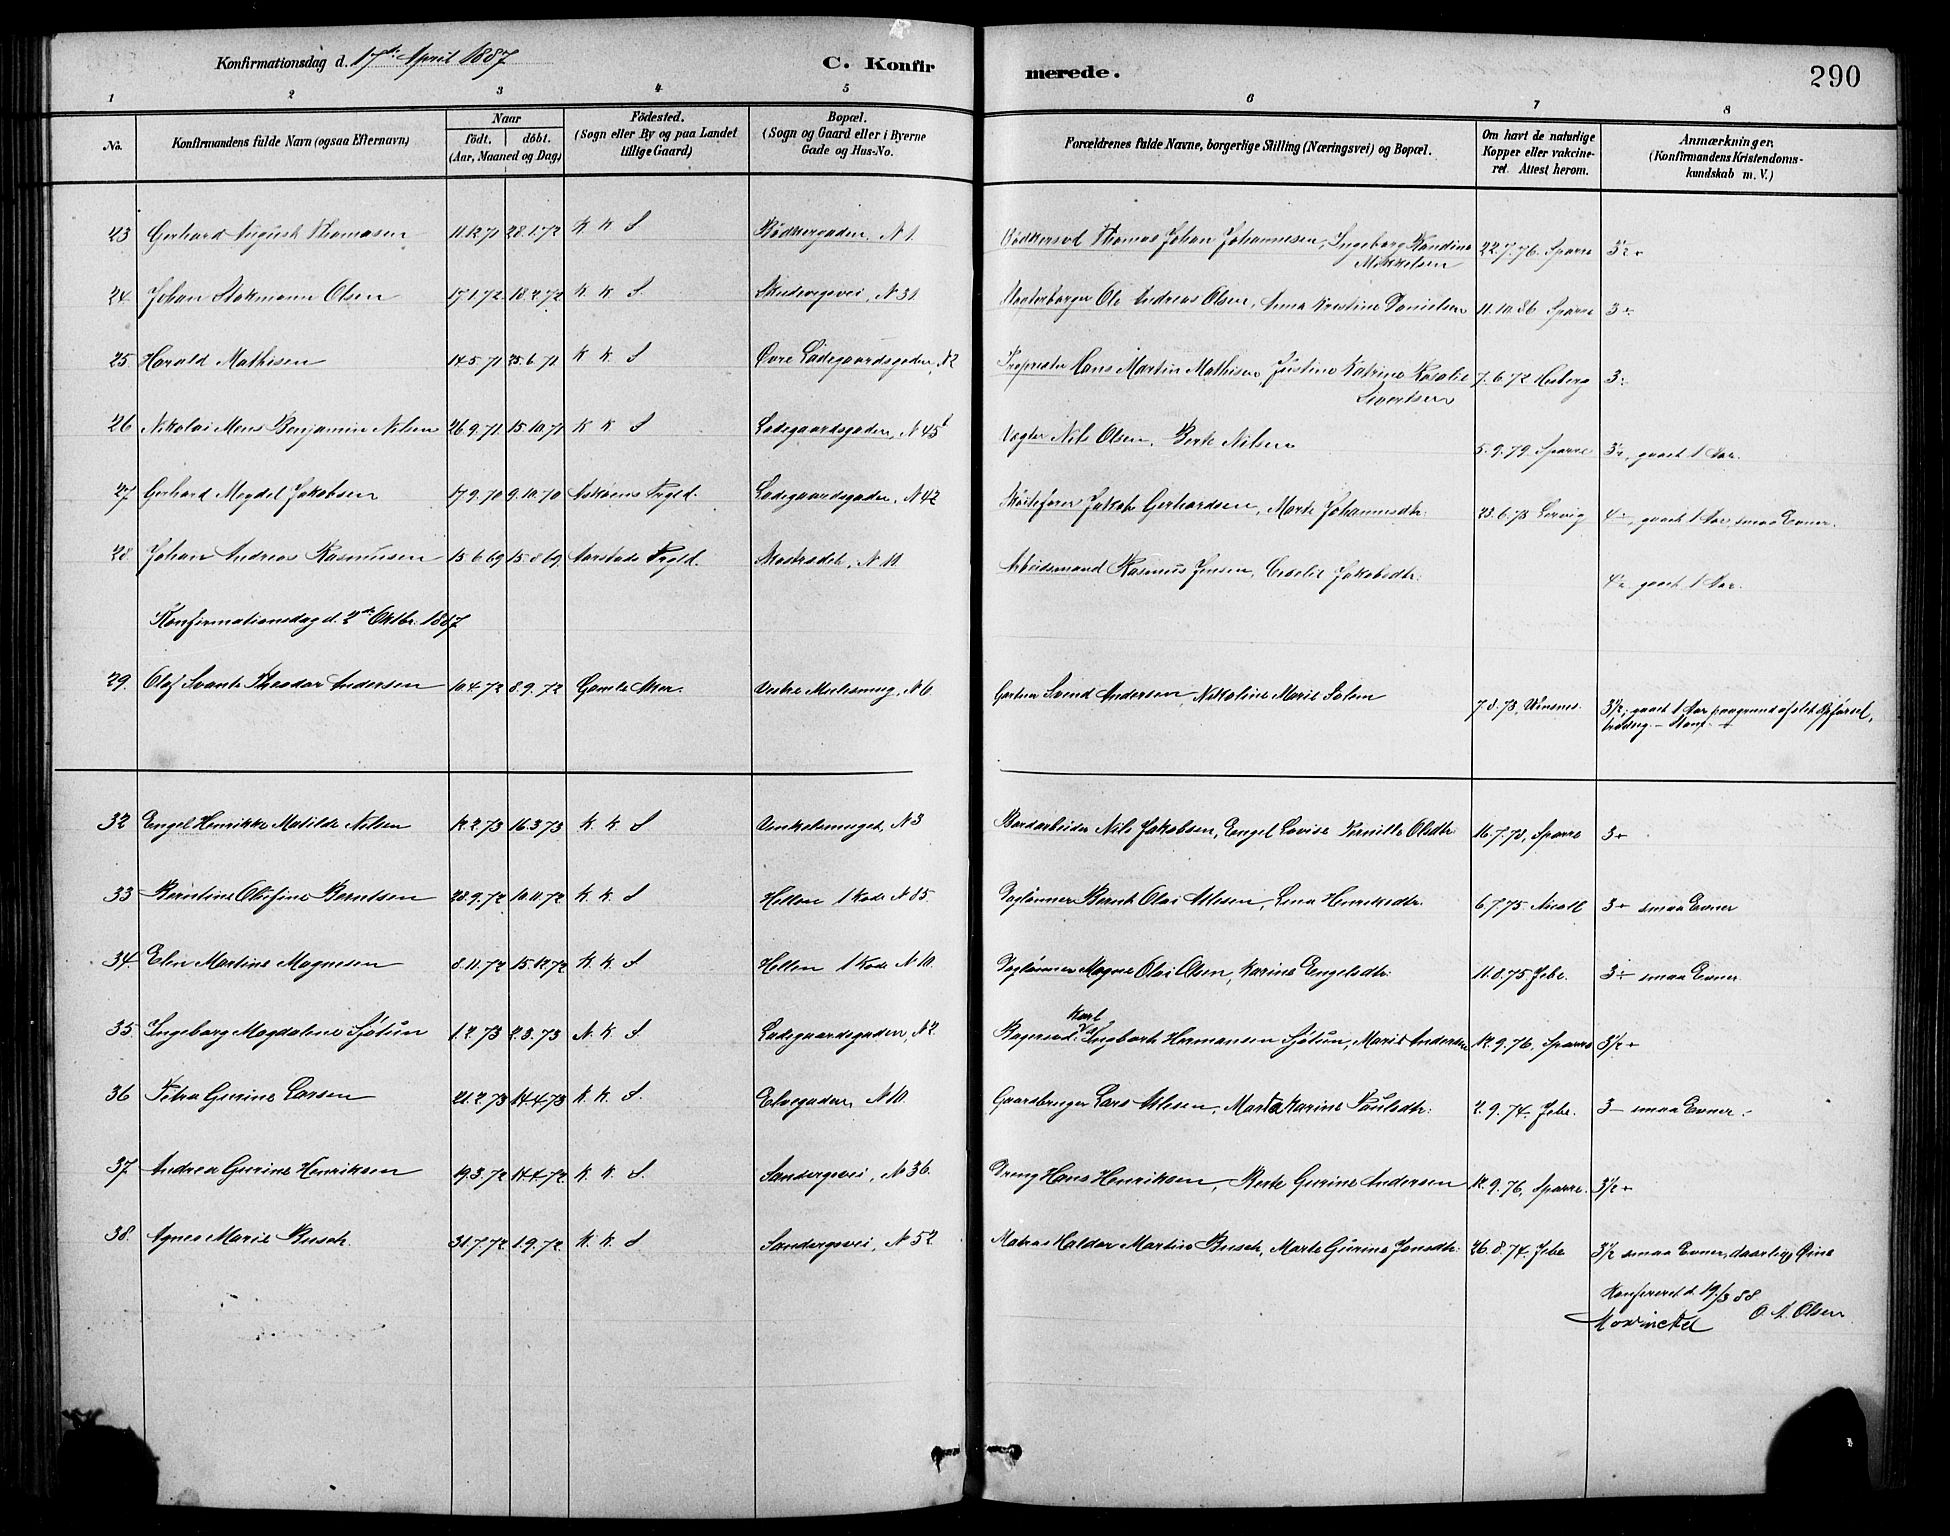 Konfirmationsdag d. 17de April 1887
C. Konfirmerede.
290
1 2 3 4 5 6 7 8
No.
Konfirmandens fulde Navn (ogsaa Efternavn)
Naar
födt. döbt.
(Aar, Maaned og Dag)
Födested.
(Sogn eller By og paa Landet
tillige Gaard)
Bopæl.
(Sogn og Gaard eller i Byerne
Gade og Hus-No.
Forældrenes fulde Navne, borgerlige Stilling (Næringsvei) og Bopæl.
Om havt de naturlige
Kopper eller vakcine-
ret. Attest herom.
Anmærkninger.
(Konfirmandens Kristendoms-
kundskab m. V.)
23 Gerhard August Thomasen 11.12.71 28.1.72 K K S Bødkergaden, N 1. Bødkersvd Thomas Johan Johannesen, Ingeborg Randine Mikkelsen 22.7.76. Sparre 3½+
24. Johan Stokmann Olsen 17.1.72 18.2.72 K K S. Skudevigsvei, N 31. Ole Andreas Olsen, Anna Kristine Danielsen 11.10.86 Sparre 3+
25. Harald Mathisen 14.5.71 25.6.71. K K. S Øvre Ladegaardsgaden, N 2 Hans Martin Mathisen, Justine Katrine Rosalie Sivertsen 7.6.72 3
26 Nikolai Mons Benjamin Nilsen 26.9.71. 15.10.71 K K. S Ladegaardsgaden, N 45b Vægter Nils Olsen, Berte Nilsen 5.9.79. Sparre 3½, gaaet 1 Aar.
27 Gerhard Meydel Jakobsen 17.9.70 9.10.70 Askøens Prgld. Ladegaardsgaden, N 42 Jakob Gerhardsen, Marte Johannesdtr. 23.6.73 Lervig 4, gaaet 1 Aar, smaa Evner.
28 Johan Andreas Rasmusen 15.6.69 15.8.69 Aarstads Prgld. N 10. Arbeidsmand Rasmus Jensen, Jakobsdtr. 4½ gaaet 1 Aar.
Konfirmationsdag d. 2de Oktbr. 1887
29. Olaf Svante Theodor Andersen 10.4.72 8.9.72 Gamle Aker. N 6. Gartner Svend Andersen, Nikoline Marie Solem 7.8.73, 3½, gaaet 1 Aar paagrund af slet Opførsel,
32 Engel Henrikke Matilde Nilsen 12.2.73 16.3.73 K. K. S Vinkelsmuget, N 3 Bordarbeider Nils Jakobsen, Engel Lovise Pernille Olsdtr. 16.7.73, Sparre 3+
33 Berntine Olufine Berntsen 28.9.72 10.11.72 K. K. S Hellen 1 Rode N 85. Daglønner Bernt Olai Nilsen, Lena Henriksdtr. 6.7.75 3+ smaa Evner
34. Elen Martine Magnesen 8.11.72 15.12.72 K. K. S Hellen 1 Rode N 10. Daglønner Magne Olai Olsen, Karine Engelsdtr. 11.8.75 Jebe. 3÷ smaa Evner.
35. Ingeborg Magdalene Sjøtun 1.2.73 2.3.73 N. K. S Ladegaardsgaden, N 2. Bagersvd. Karl Ingbart Hermansen Sjøtun, Marie Andersen 12.9.76, Sparre 3½+
36 Petra Gurine Larsen 21.2.73 14.4.73 K. K. S. Elvegaden, N 10. Gaardbruger Lars Nilsen, Marta Karine Paulsdtr. 2.9.74. Jebe. 3– smaa Evner.
37. Andrea Gurine Henriksen 19.3.72 14.4.72 K. K. S. Sandvigsvei, N 36. Dreng Hans Henriksen, Berte Gurine Andersen 12.9.76, Sparre. 3½+
38. Agnes Marie Busch. 31.7.72 1.9.72 K. K. S Sandvigsvei, N 52. Matros Haldor Martin Busch, Marte Gurine Jonsdtr. 26.8.74. Jebe 3½ smaa Evner, daarlige Øine
Konfereret d. 19/3 88
Mowinckel O. A. Olsen